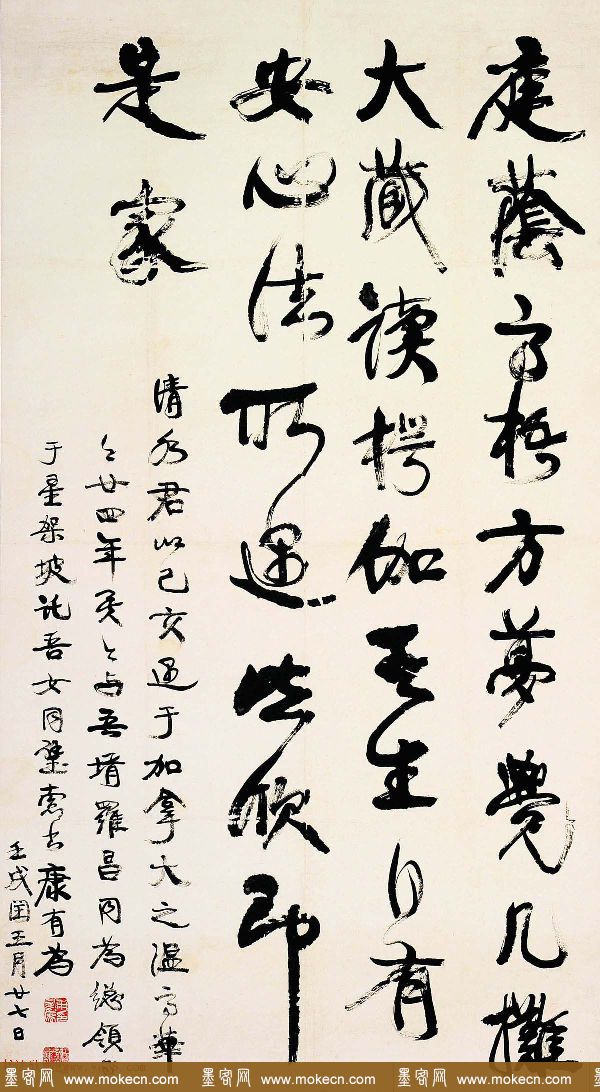 庭蔭高梧方夢覺几攤
大藏读楞伽吾生自有
安心法所遇皆欣即
是家
清水君以己亥遇于加拿大之温高華
廿四年矣与吾壻羅昌同為總領
于星架坡託吾女同璧索書康有為
壬戌閏五月廿七日
墨客网 www.mokecn.com 墨客网 www.mokecn.com 墨客网 www.mokecn.com